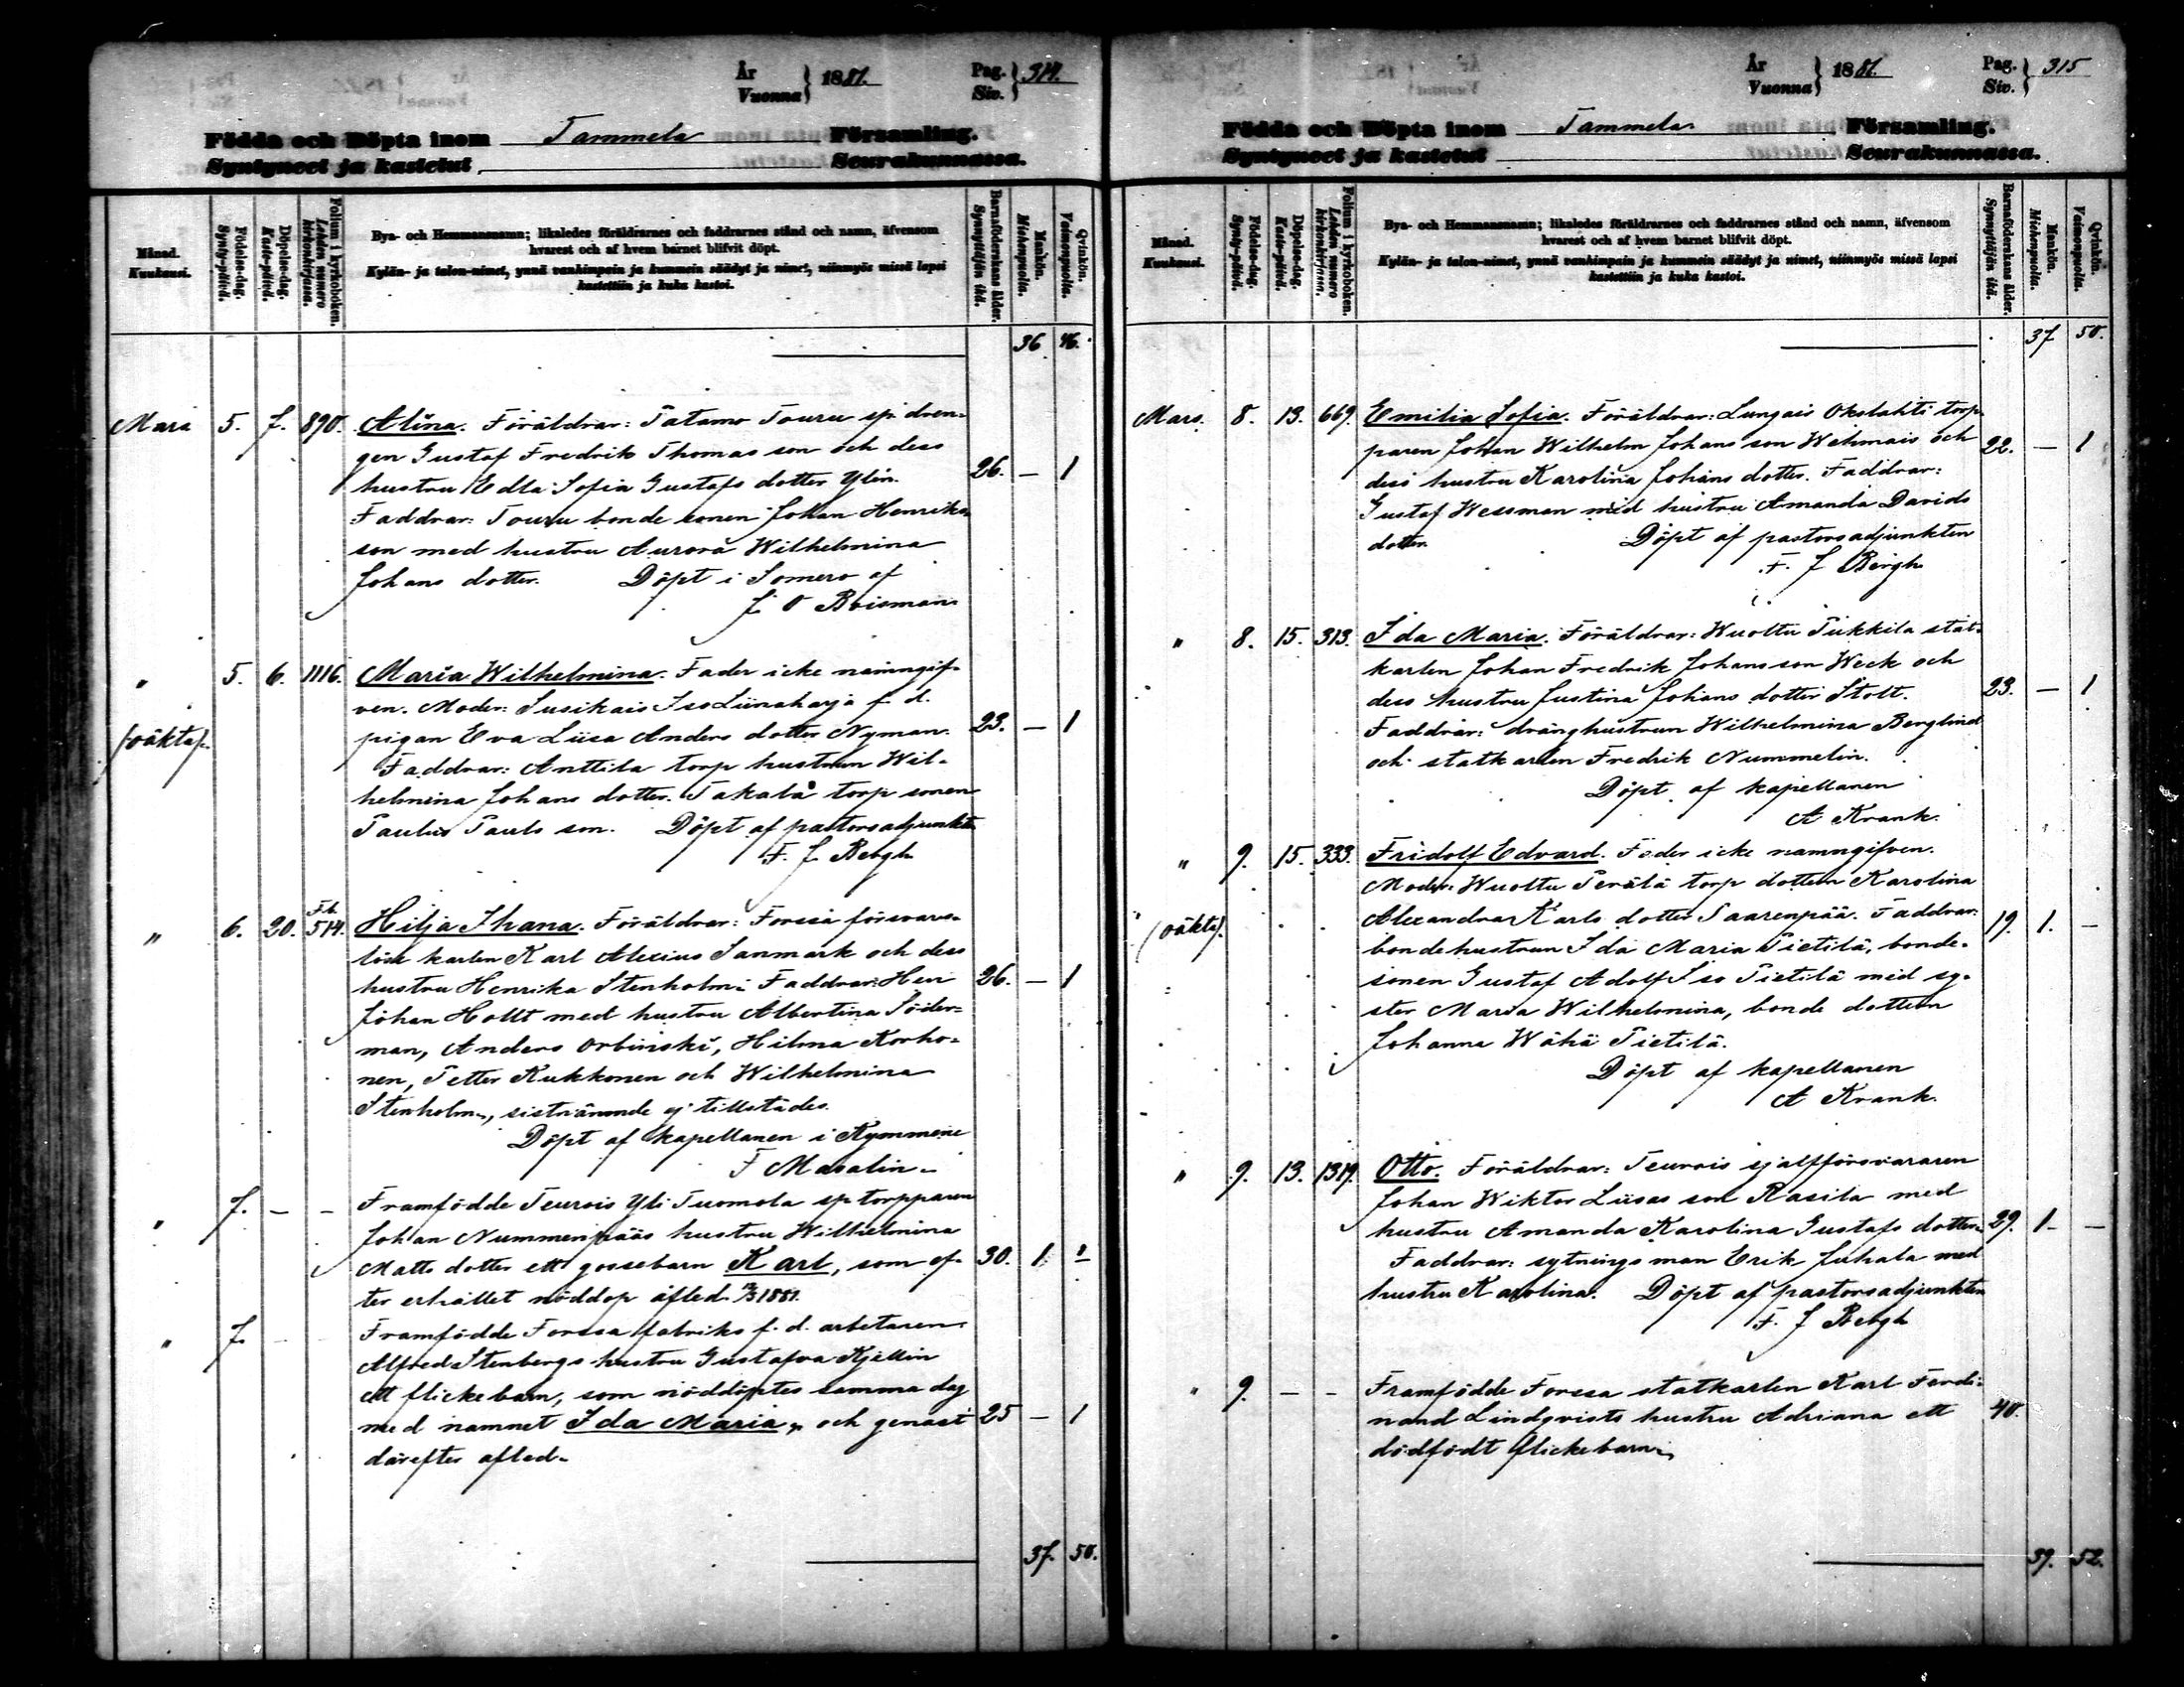 År
Vuonna } 1881.
Pag.
Siv. } 314.
Födda och Döpta inom Tammela Församling.
Syntyneet ja kastetut Seurakunnassa.
Månad.
Kuukausi.
Födelse-dag.
Synty-päivä.
Döpelse-dag.
Kaste-päivä.
Folium i kyrkoboken.
Lehden numero
kirkonkirjassa.
Bya- och Hemmansnamn; likaledes föräldrarnes och faddrarnes stånd och namn, äfvensom
hvarest och af hvem barnet blifvit döpt.
Kylän- ja talon-nimet, ynnä vanhimpain ja kummein säädyt ja nimet, niinmyös missä lapsi
kastettiin ja kuka kastoi.
Barnaföderskans ålder.
Synnyttäjän ikä.
Mankön.
Miehenpuolia.
Qvinkön.
Vaimonpuolia.
36 46.
Mars 5. 7. 890. Alina. Föräldrar: Patamo Touru sp dren-
gen Gustaf Fredrik Thomas son och dess
hustru Edla Sofia Gustafs dotter Ylén. 26. — 1
Faddrar: Touru bonde sonen Johan Henriks
son med hustru Aurora Wilhelmina
Johans dotter. Döpt i Somero af
J O Boisman
" 5. 6. 1116. Maria Wilhelmina. Fader icke namngif-
ven. Moder: Susikais Iso Liinaharja f d.
(oäkta). pigan Eva Liisa Anders dotter Nyman. 23. — 1
Faddrar: Anttila torp hustrun Wil-
helmina Johans dotter. Takala torp sonen
Paulus Pauls son. Döpt af pastorsadjunkten
F. J Bergh
" 6. 20. F.b. 514. Hilja Ihana. Föräldrar: Forssa försvars-
löse karlen Karl Alexius Sanmark och dess
hustru Henrika Stenholm. Faddrar: Herr 26. — 1
Johan Hollt med hustru Albertina Söder-
man, Anders Orbinski, Hilma Korho-
nen, Petter Kukkonen och Wilhelmina
Stenholm, sistnämnde ej tillstädes.
Döpt af kapellanen i Kymmene
F Masalin.
" 7. — — Framfödde Teurois Yli Tuomola sp torpparen
Johan Nummenpääs hustru Wilhelmina
Matts dotter ett gossebarn Karl, som ef- 30. 1. —
ter erhållet nöddop afled 12/3 1881.
" 7. — Framfödde Forssa fabriks f. d. arbetaren
Alfred Stenbergs hustru Gustafva Kjellin
ett flickebarn, som nöddöptes samma dag
med namnet Ida Maria, och genast 25 — 1
därefter afled.
37. 50.
År
Vuonna } 1881
Pag.
Siv. } 315
Födda och Döpta inom Tammela Församling.
Syntyneet ja kastetut Seurakunnassa.
Månad.
Kuukausi.
Födelse-dag.
Synty-päivä.
Döpelse-dag.
Kaste-päivä.
Folium i kyrkoboken.
Lehden numero
kirkonkirjassa.
Bya- och Hemmansnamn; likaledes föräldrarnes och faddrarnes stånd och namn, äfvensom
hvarest och af hvem barnet blifvit döpt.
Kylän- ja talon-nimet, ynnä vanhimpain ja kummein säädyt ja nimet, niinmyös missä lapsi
kastettiin ja kuka kastoi.
Barnaföderskans ålder.
Synnyttäjän ikä.
Mankön.
Miehenpuolia.
Qvinkön.
Vaimonpuolia.
37 50.
Mars. 8. 13. 669. Emilia Sofia. Föräldrar: Lungais Okslahti torp-
paren Johan Wilhelm Johans son Wehmais och 22. — 1
dess hustru Karolina Johans dotter. Faddrar:
Gustaf Wessman med hustru Amanda Davids
dotter. Döpt af pastorsadjunkten
F. J Bergh
" 8. 15. 313. Ida Maria. Föräldrar: Wuoltu Pukkila stat-
karlen Johan Fredrik Johansson Weck och
dess hustru Justina Johans dotter Stolt. 23. — 1
Faddrar: dränghustrun Wilhelmina Berglind
och statkarlen Fredrik Nummelin.
Döpt af kapellanen
A Krank.
" 9. 15. 333. Fridolf Edvard. Fader icke namngifven.
Moder: Wuoltu Perälä torp dottern Karolina
(oäkta). Alexandra Karls dotter Saarenpää. Faddrar: 19. 1. —
bondehustrun Ida Maria Pietilä, bonde-
sonen Gustaf Adolf Iso Pietilä med sy-
ster Maria Wilhelmina, bonde dottern
Johanna Wähä Pietilä.
Döpt af kapellanen
A Krank.
" 9. 13. 1319. Otto. Föräldrar: Teurois sjelfförsvararen
Johan Wiktor Liisas son Rasila med
hustru Amanda Karolina Gustafs dotter. 29. 1 —
Faddrar: sytningsman Erik Juhala med
hustru Karolina. Döpt af pastorsadjunkten
F. J Bergh
" 9. — — Framfödde Forssa statkarlen Karl Ferdi-
nand Lindqvists hustru Adriana ett 40.
dödfödt flickebarn.
39. 52.